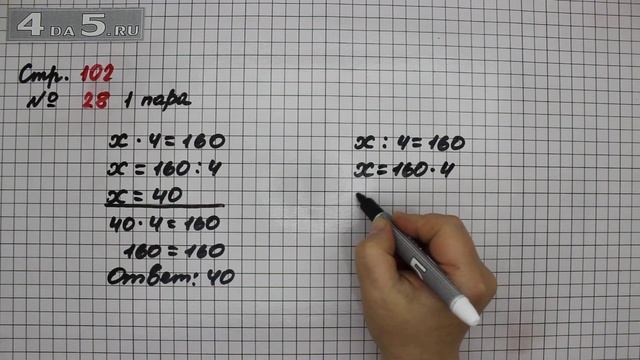 4 ДА 5.RU
Стр. 102
№ 28 1 пара
x · 4 = 160
x = 160 : 4
x = 40
40 · 4 = 160
160 = 160
Ответ: 40
x : 4 = 160
x = 160 · 4